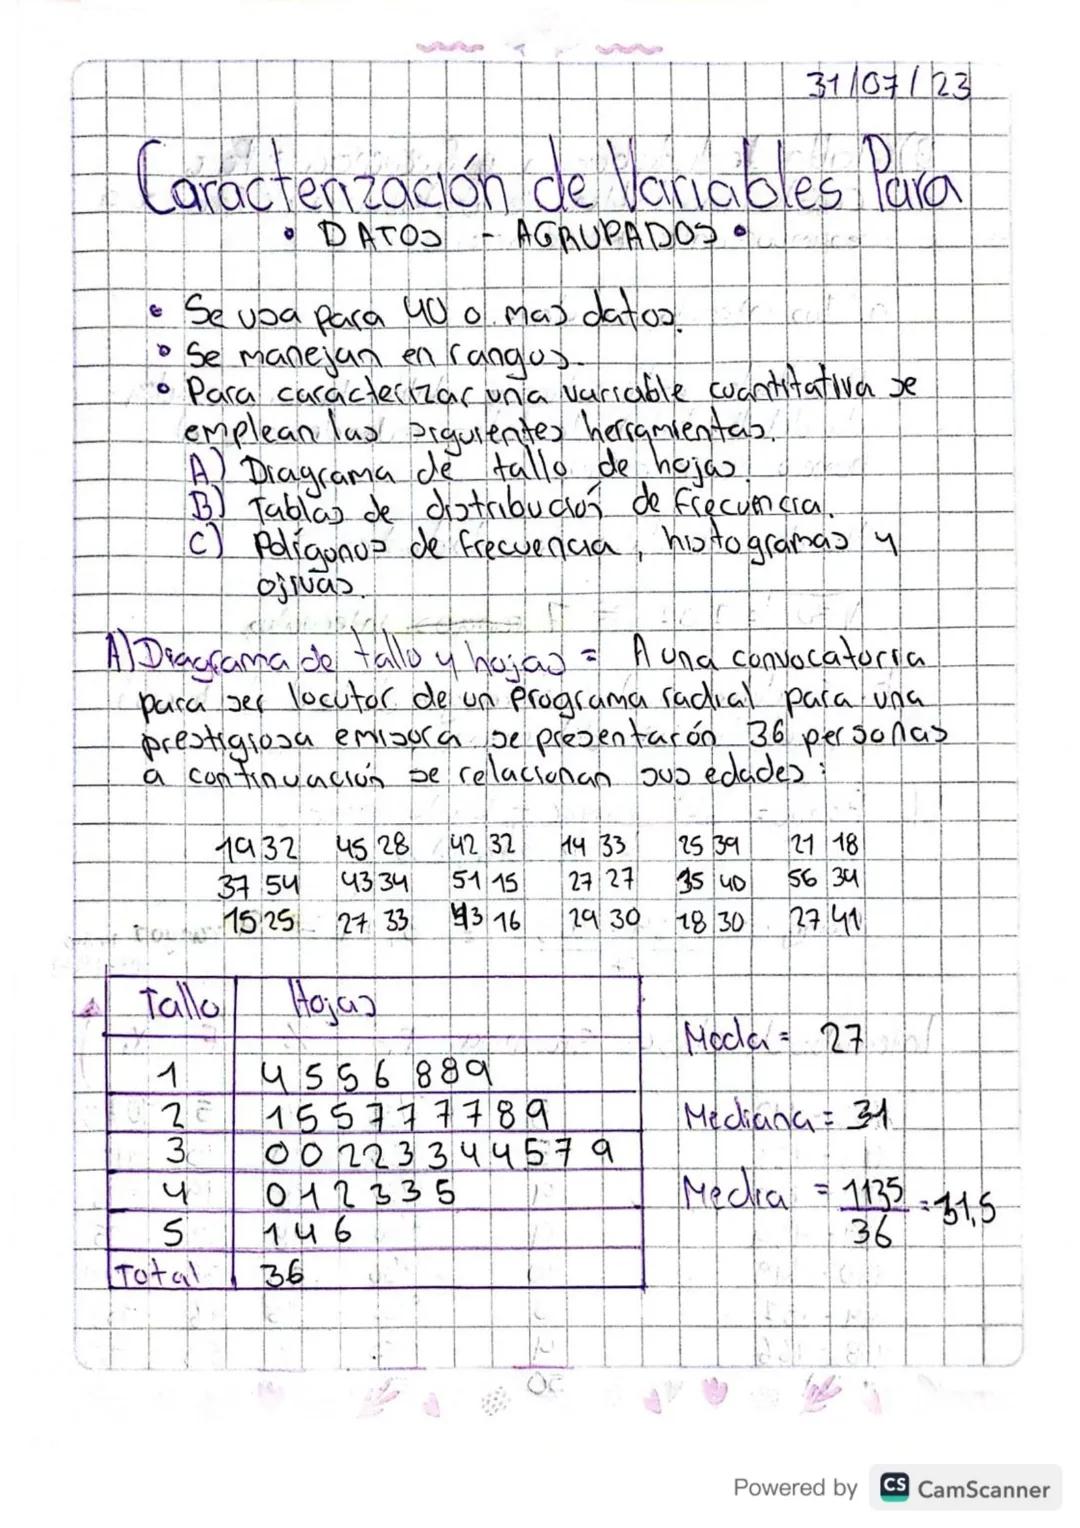 31/07/23
Caracterización de Variables Para
• DATOS - AGRUPADOS •
• Se usa para 40 o mas datos.
• Se manejan en rangos.
• Para caracterizar una variable cuantitativa se
emplean las siguientes herramientas.
A) Diagrama de tallo de hojas.
B) Tablas de distribución de frecuencia.
C) Polígonos de frecuencia, histogramas y
ojivas.
A) Diagrama de tallo y hojas = A una convocatoria
para ser locutor de un programa radial para una
prestigiosa emisora se presentarón 36 personas
a continuación se relacionan sus edades:
19 32 45 28 42 32 14 33 25 39 21 18
37 54 43 34 51 15 27 27 35 40 56 34
15 25 27 33 43 16 29 30 18 30 27 41
Tallo Hojas
1 4 5 5 6 8 8 9
2 1 5 5 7 7 7 7 8 9
3 0 0 2 2 3 3 4 4 5 7 9
4 0 1 2 3 3 5
5 1 4 6
Total 36
Moda = 27
Mediana = 31
Media = 1135/36 = 31,5
Powered by CS CamScanner